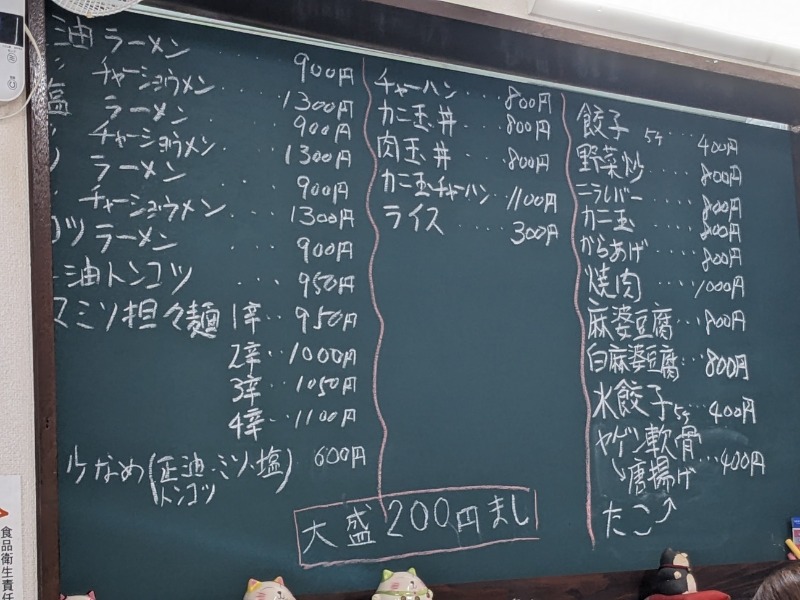 油ラーメン ‥‥ 900円
チャーショウメン ‥‥ 1300円
塩 ラーメン ‥‥ 900円
チャーショウメン ‥‥ 1300円
ラーメン ‥‥ 900円
チャーショウメン ‥‥ 1300円
コツラーメン ‥‥ 900円
油トンコツ ‥‥ 950円
マミソ担々麺 1辛‥950円
2辛‥1000円
3辛‥1050円
4辛‥1100円
少なめ(正油・ミソ・塩 トンコツ) 600円
チャーハン ‥‥ 800円
カニ玉丼 ‥‥ 800円
肉玉丼 ‥‥ 800円
カニ玉チャーハン ‥‥ 1100円
ライス ‥‥ 300円
餃子 5ケ ‥‥ 400円
野菜炒 ‥‥ 800円
ニラレバー ‥‥ 800円
カニ玉 ‥‥ 800円
からあげ ‥‥ 800円
焼肉 ‥‥ 1000円
麻婆豆腐 ‥‥ 800円
白麻婆豆腐 ‥‥ 800円
水餃子 5ケ ‥‥ 400円
ヤゲン軟骨
↘唐揚げ ‥‥ 400円
たこ↗
大盛200円まし
食品衛生責任